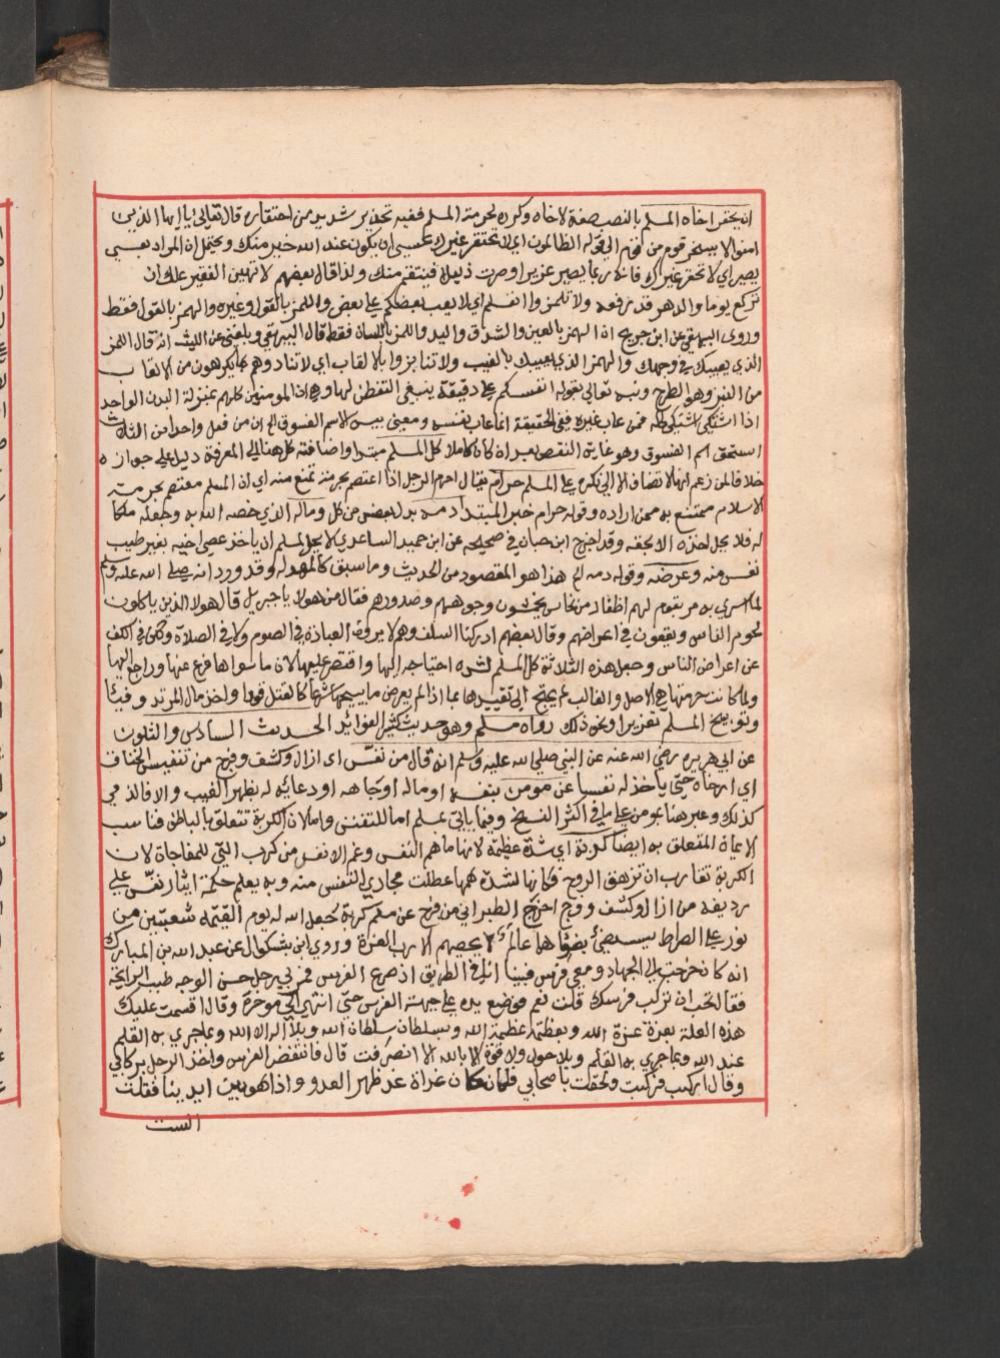 ان يحقر اخاه المسلم بالنصب صفة لاخاه وكرره لحرمة المسلم ففيه تحذير شديد من احتقاره قال تعالى يا ايها الذين
امنوا لا يسخر قوم من قوم الى قوله الظالمون اي لا تحتقر غيرك عسى ان يكون عند الله خير منك ويحتمل ان المراد بعسى
يصير اي لا تحقر غيرك فانه ربما يصير عزيزا وصرت ذليلا فينتقم منك ولذا قال بعضهم لا تهين الفقير علك ان
تركع يوما والدهر قد رفعه ولا تلمزوا انفسكم اي لا يعب بعضكم على بعض واللمز بالقول وغيره والهمز بالقول فقط
وروى البيهقي عن ابن جريج ان الهمز بالعين والشدق واليد واللمز باللسان فقط قال البيهقي وبلغني عن الليث انه قال اللمز
الذي يعيبك في وجهك والهمز الذي يعيبك بالغيب ولا تنابزوا بالالقاب اي لا تنادوهم بما يكرهون من الالقاب
من النبز وهو الطرح ونبه تعالى بقوله انفسكم على دقيقة ينبغي التفطن لها وهي ان المومنين كلهم بمنزلة البدن الواحد
اذا اشتكى اشتكى كله فمن عاب غيره ففي الحقيقة انما عاب نفسه ومعنى بيس الاسم الفسوق الخ ان من فعل واحدا من الثلاث
استحق اسم الفسوق وهو غاية النقص بعد ان كان كاملا كل المسلم مبتدا واضافة كل هنا الى المعرفة دليل على جوازه
خلافا لمن زعم انها لا تضاف الا الى نكرة على المسلم حرام يقال احرم الرجل اذا اعتصم بحرمة تمنع منه اي ان المسلم معتصم بحرمة
الاسلام ممتنع به ممن اراده وقوله حرام خبر المبتدا دمه بدل بعض من كل وماله الذي خصه الله به وجعله ملكا
له فلا يحل لاحد الا بحقه وقد اخرج ابن حبان في صحيحه عن ابن حميد الساعدي لا يحل لمسلم ان ياخذ عصى اخيه بغير طيب
نفس منه وعرضه وقوله دمه الخ هذا هو المقصود من الحديث وما سبق كالمهد له وقد ورد انه صلى الله عليه وسلم
لما اسري به مر بقوم لهم اظفار من نحاس يخمشون وجوههم وصدورهم فقال من هولا يا جبريل قال هولا الذين ياكلون
لحوم الناس ويقعون في اعراضهم وقال بعضهم ادركنا السلف وهم لا يرون العبادة في الصوم ولا في الصلاة ولكن في الكف
عن اعراض الناس وجعل هذه الثلاثة كل المسلم لشدة احتياجه اليها واقتصر عليها لان ما سواها فرع عنها وراجع اليها
ولما كانت حرمتها هي الاصل والغالب لم يحتج الى تقييدها بما اذا لم يعرض ما يبيحها شرعا كالقتل قودا واخذ مال المرتد فيئا
وتوبيخ المسلم تعزيرا ونحو ذلك رواه مسلم وهو حديث كثير الفوائد الحديث السادس والثلثون
عن ابي هريره رضي الله عنه عن النبي صلى الله عليه وسلم انه قال من نفس اي ازال وكشف وفرج من تنفيس الخناق
اي ارخاه حتى ياخذ له نفسا عن مومن بنفسه او ماله او جاهه او دعائه له بظهر الغيب والا فالذمي
كذلك وعبر هنا بمومن على ما في اكثر النسخ وفيما ياتي بمسلم اما للتفنن واما لان الكربة تتعلق بالباطن فناسب
الايمان المتعلق به ايضا كربة اي شدة عظيمة لانها ما هم النفس وغم الانفس من كرب التي للمفاجاة لان
الكربة تقارب ان تزهق الروح فكانها لشدة همها عطلت مجاري التنفس منه وبه يعلم حكمة ايثار نفس على
رديفه من ازال وكشف وفرج اخرج الطبراني من فرج عن مسلم كربة جعل الله له يوم القيمة شعبتين من
نور على الصراط يستضئ بضوئهما عالم لا يحصيهم الا رب العزة وروي ابن بشكوال عن عبد الله بن المبارك
انه كان خرجت الى الجهاد ومعي فرس فبينا انا في الطريق اذ صرع الفرس فمر بي رجل حسن الوجه طيب الرايحة
فقال اتحب ان تركب فرسك قلت نعم فوضع يده على جبهة الفرس حتى انتهى الى موخره وقال اقسمت عليك
هذه العلة بعزة عزة الله وبعظمة عظمة الله وبسلطان سلطان الله وبلا اله الا الله وبما جري به القلم
عند الله وبما جري به القلم وبلا حول ولا قوة الا بالله الا انصرفت قال فانتفض الفرس واخذ الرجل بركابي
وقال اركب فركبت ولحقت باصحابي فلما كان غداة غد ظهر العدو واذا هو بين ايدينا فقلت
الست